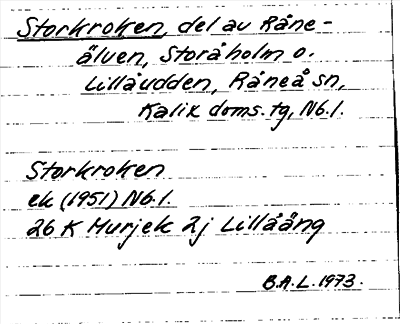 Storkroken, del av Råne-
älven, Storåholm o.
Lillåudden, Råneå sn,
Kalix doms. tg, Nb.l.
Storkroken
ek (1951) Nb.l.
26 K Murjek 2j Lillåäng
B.A.L. 1973.